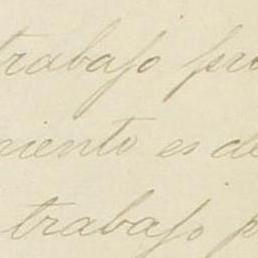 trabajo pro
miento es de
trabajo p